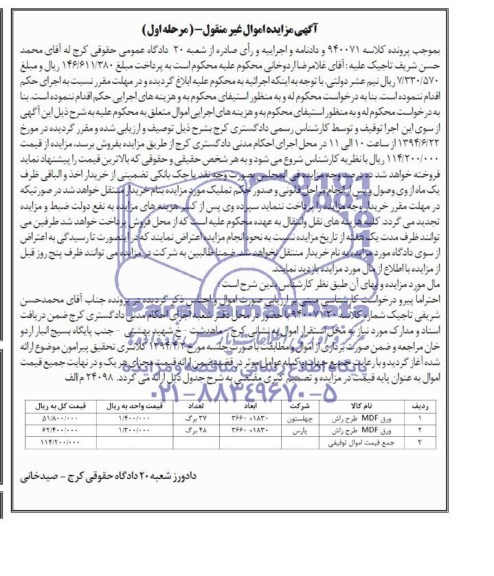 آگهی مزایده اموال غیر منقول - (مرحله اول)
بموجب پرونده کلاسه ۹۴۰۰۷۱ و دادنامه و اجرائیه و رأی صادره از شعبه ۲۰ دادگاه عمومی حقوقی کرج له آقای محمد
حسن شریف تاجیک علیه : آقای غلامرضا اردوخانی محکوم علیه محکوم است به پرداخت مبلغ ۱۴۶/۶۱۱/۳۸۰ ریال و مبلغ
۷/۳۳۰/۵۷۰ ریال نیم عشر دولتی. با توجه به اینکه اجرائیه به محکوم علیه ابلاغ گردیده و در مهلت مقرر نسبت به اجرای حکم
اقدام ننموده است. بنا به درخواست محکوم له و به منظور استیفای محکوم به و هزینه های اجرایی حکم اقدام ننموده است. بنا
به درخواست محکوم له و به منظور استیفای محکوم به و هزینه های اجرایی اموال متعلق به محکوم علیه به شرح ذیل این آگهی
از سوی این اجرا توقیف و توسط کارشناس رسمی دادگستری کرج بشرح ذیل توصیف و ارزیابی شده و مقرر گردیده در مورخ
۱۳۹۴/۶/۲۲ از ساعت ۱۰ الی ۱۱ در محل اجرای احکام مدنی دادگستری کرج از طریق مزایده بفروش برسد، مزایده از قیمت
۱۱۴/۲۰۰/۰۰۰ ریال با نظریه کارشناس شروع می شود و به هر شخص حقیقی و حقوقی که بالاترین قیمت را پیشنهاد نماید
فروخته خواهد شد ده درصد وجه مزایده فی المجلس بصورت وجه نقد یا چک بانکی تضمینی از خریدار اخذ و الباقی ظرف
یک ماه از وی وصول و پس از انجام مراحل قانونی و صدور حکم تملیک مورد مزایده بنام خریدار منتقل خواهد شد در صورتیکه
در مهلت مقرر خریدار وجه مزایده را پرداخت ننماید سپرده وی پس از کسر هزینه های مزایده به نفع دولت ضبط و مزایده
تجدید می گردد. کلیه هزینه های نقل وانتقال به عهده محکوم علیه است که از محل فروش پرداخت خواهد شد طرفین می
توانند ظرف مدت یک هفته از تاریخ مزایده نسبت به نحوه انجام مزایده اعتراض نمایند که در اینصورت تا رسیدگی به اعتراض
از سوی دادگاه مورد مزایده به نام خریدار منتقل نخواهد شد. ضمنا طالبین به شرکت در مزایده می توانند ظرف پنج روز قبل
از مزایده با اطلاع از مال مورد مزایده بازدید نمایند.
مال مورد مزایده و بهای آن طبق نظر کارشناس بدین شرح است :
احتراما پیرو درخواست کارشناسی مبنی بر ارزیابی صورت اموال و اجناس ذکر گردیده در پرونده جناب آقای محمدحسن
شریفی تاجیک شماره کلاسه ۹۴۰۰۷۱/۲۰ با حضور در محل دفتر شعبه اجرای احکام مدنی دادگستری کرج ضمن دریافت
اسناد و مدارک مورد نیاز به محل استقرار اموال به نشانی کرج - ماهدشت - خ شهید بهشتی - جنب پایگاه بسیج انبار اردو
خان مراجعه و ضمن صورت برداری از اموال و مطابقت با صورت جلسه مورخ کلانتری تحقیق پیرامون موضوع ارائه
شده آغاز گردید و با رعایت جمیع جهات و کلیه عوامل موثر در قضیه ضمن ارائه قیمت مجزای هر یک و در نهایت جمیع قیمت
اموال به عنوان پایه قیمت در مزایده و تصمیم گیری مقتضی به شرح جدول ذیل ارائه می گردد. ۲۴۰۹۸ م الف
۰۲۱-۸۸۳۴۹۶۷۰-۵
ردیف نام کالا شرکت ابعاد تعداد قیمت واحد به ریال قیمت کل به ریال
۱ ورق MDF طرح راش چهلستون ۱۸۳۰*۳۶۶۰ ۳۷ برگ ۱/۴۰۰/۰۰۰ ۵۱/۸۰۰/۰۰۰
۲ ورق MDF طرح راش پارس ۱۸۳۰*۳۶۶۰ ۴۸ برگ ۱/۳۰۰/۰۰۰ ۶۲/۴۰۰/۰۰۰
۳ جمع قیمت اموال توقیفی ۱۱۴/۲۰۰/۰۰۰
دادورز شعبه ۲۰ دادگاه حقوقی کرج - صیدخانی